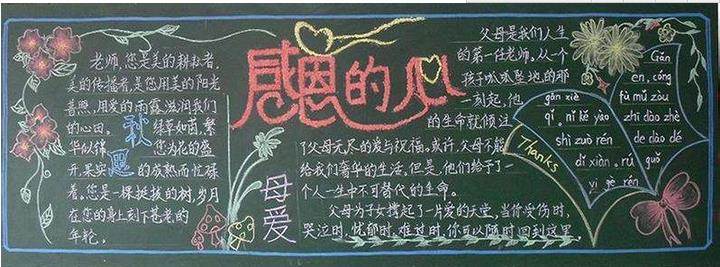 感恩的心
老师，您是美的耕耘者，
美的传播者，是您用美的阳光
普照，用爱的雨露滋润我们
的心田。绿草如茵，繁
华似锦 您为花的盛
开，果实的成熟而忙碌
着。您是一棵挺拔的树，岁月
在您的身上刻下苍老的
年轮。
秋
恩
母爱
父母是我们人生
的第一任老师，从一个
孩子呱呱落地的那
一刻起，他
的生命就倾注
了父母无尽的爱与祝福。或许，父母不能
给我们奢华的生活，但是，他们给予了一
个人一生中不可替代的生命。
父母为子女撑起了一片爱的天堂，当你受伤时，
哭泣时，忧郁时，难过时，你可以随时回到这里
Thanks
gǎn xiè
qǐ, nǐ kě yào
shì zuò rén
dǐ xiàn, rú guǒ
yí gè rén
Gǎn
en, cóng
fù mǔ zòu
zhī dào zhè
de dào dé